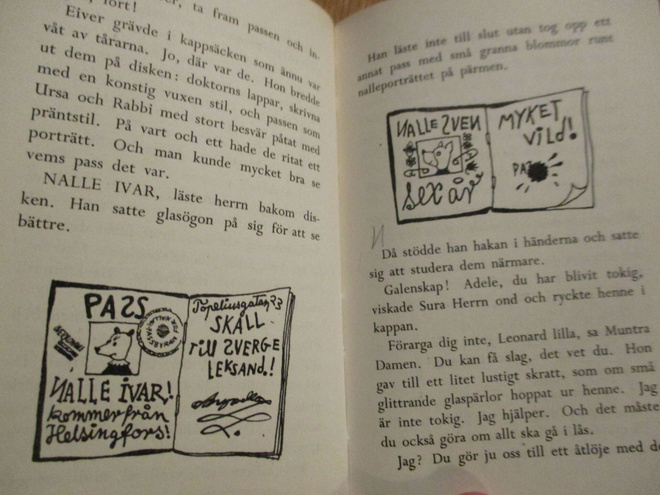 ta fram passen och in-
fort!
Eiver grävde i kappsäcken som ännu var
våt av tårarna. Jo, där var de. Hon bredde
ut dem på disken: doktorns lappar, skrivna
med en konstig vuxen stil, och passen som
Ursa och Rabbi med stort besvär påtat med
präntstil. På vart och ett hade de ritat ett
porträtt. Och man kunde mycket bra se
vems pass det var.
NALLE IVAR, läste herrn bakom dis-
ken. Han satte glasögon på sig för att se
bättre.
PASS
NALLE IVAR!
kommer från
Helsingfors!
Topeliusgatan 23
SKALL
till SVERGE
LEKSAND!
Han läste inte till slut utan tog opp ett
annat pass med små granna blommor runt
nalleporträttet på pärmen.
NALLE SVEN
sex år
MYKET
VILD!
PASS
Då stödde han hakan i händerna och satte
sig att studera dem närmare.
Galenskap! Adele, du har blivit tokig,
viskade Sura Herrn ond och ryckte henne i
kappan.
Förarga dig inte, Leonard lilla, sa Muntra
Damen. Du kan få slag, det vet du. Hon
gav till ett litet lustigt skratt, som om små
glittrande glaspärlor hoppat ur henne. Jag
är inte tokig. Jag hjälper. Och det måste
du också göra om allt ska gå i lås.
Jag? Du gör ju oss till ett åtlöje med